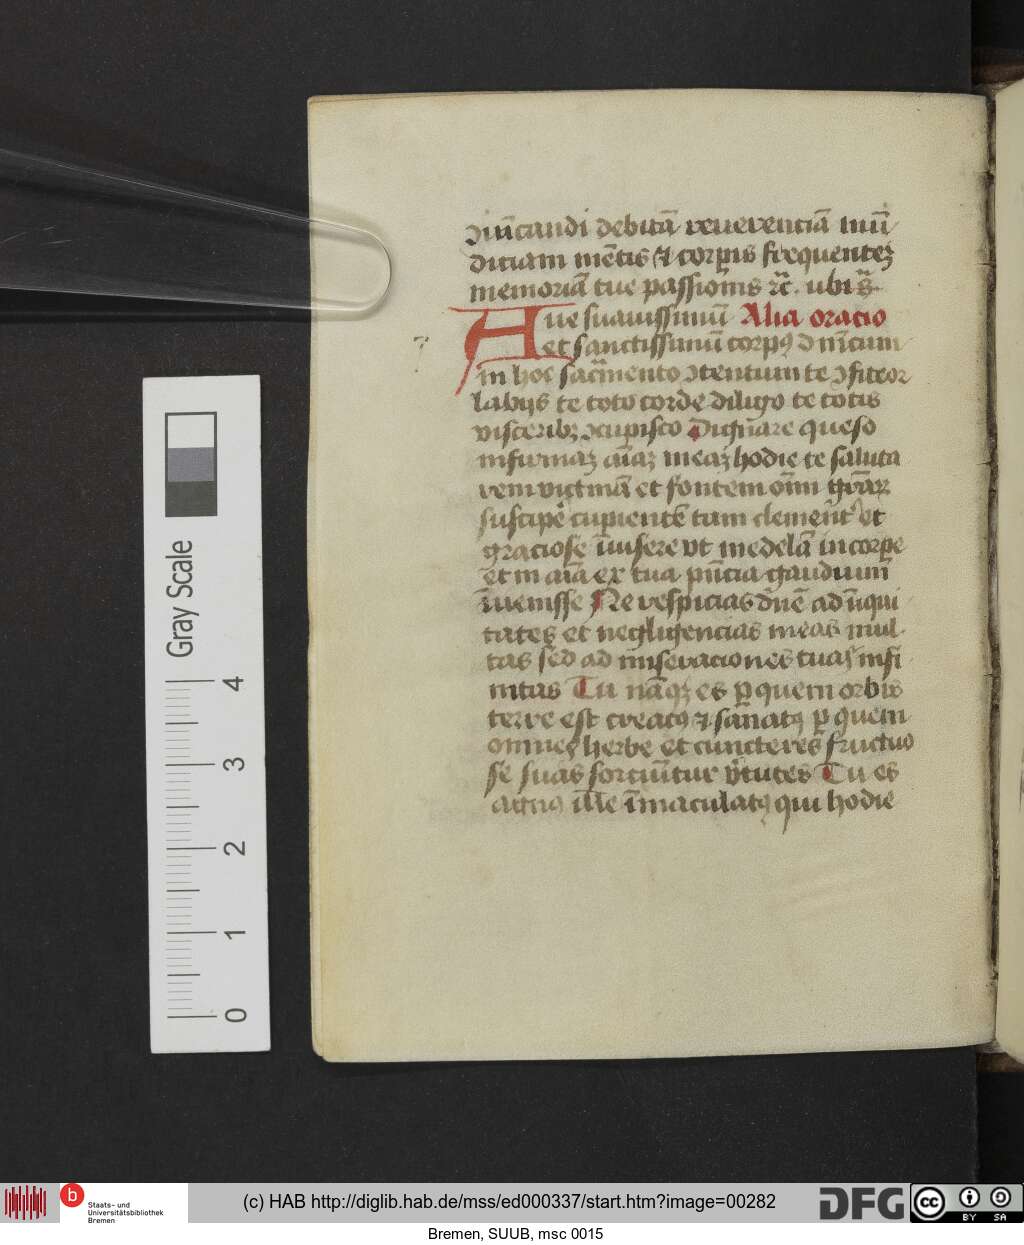 ↄiūcandi debitā reuerenciā mūdiciam mētis et corpis frequentez
memoriā tue passionis ꝛc̄. ubi s̄
Aue suauissimū Alia oracio
et sanctissimū corpꝰ dn̄icum
in hoc sac̄mento ↄtentum te ↄfiteor
labijs te toto corde diligo te totis
visceribꝫ ↄcupisco Dignare queso
infirmaꝫ aīaꝫ meaꝫ hodie te saluta
rem victimā et fontem om̄i gr̄aꝝ
suscipe cupientē tam clemēt et
graciose īuisere vt medelā in corpe
et in aīa ex tua pn̄cia gaudium
īuenisse Ne respicias dn̄e ad īiqui
tates et negligencias meas mul
tas sed ad miseraciones tuas infi
nitas Tu nāqꝫ es ꝑ quem orbis
terre est creatꝰ et sanatꝰ ꝑ quem
omnes herbe et cuncte res fructuo
se suas sorciūtur v̓tutes Tu es
agnꝰ ille īmaculatꝰ qui hodie
Gray Scale
4
3
2
1
0
b
Staats- und
Universitätsbibliothek
Bremen
(c) HAB http://diglib.hab.de/mss/ed000337/start.htm?image=00282
DFG
cc
BY SA
Bremen, SUUB, msc 0015